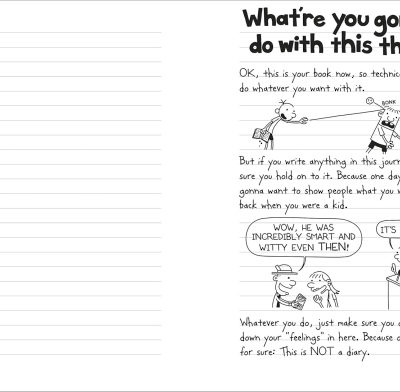 What're you go
do with this th
OK, this is your book now, so technic
do whatever you want with it.
BONK
But if you write anything in this journ
sure you hold on to it. Because one day
gonna want to show people what you w
back when you were a kid.
WOW, HE WAS
INCREDIBLY SMART AND
WITTY EVEN THEN!
IT'S
Whatever you do, just make sure you d
down your "feelings" in here. Because o
for sure: This is NOT a diary.